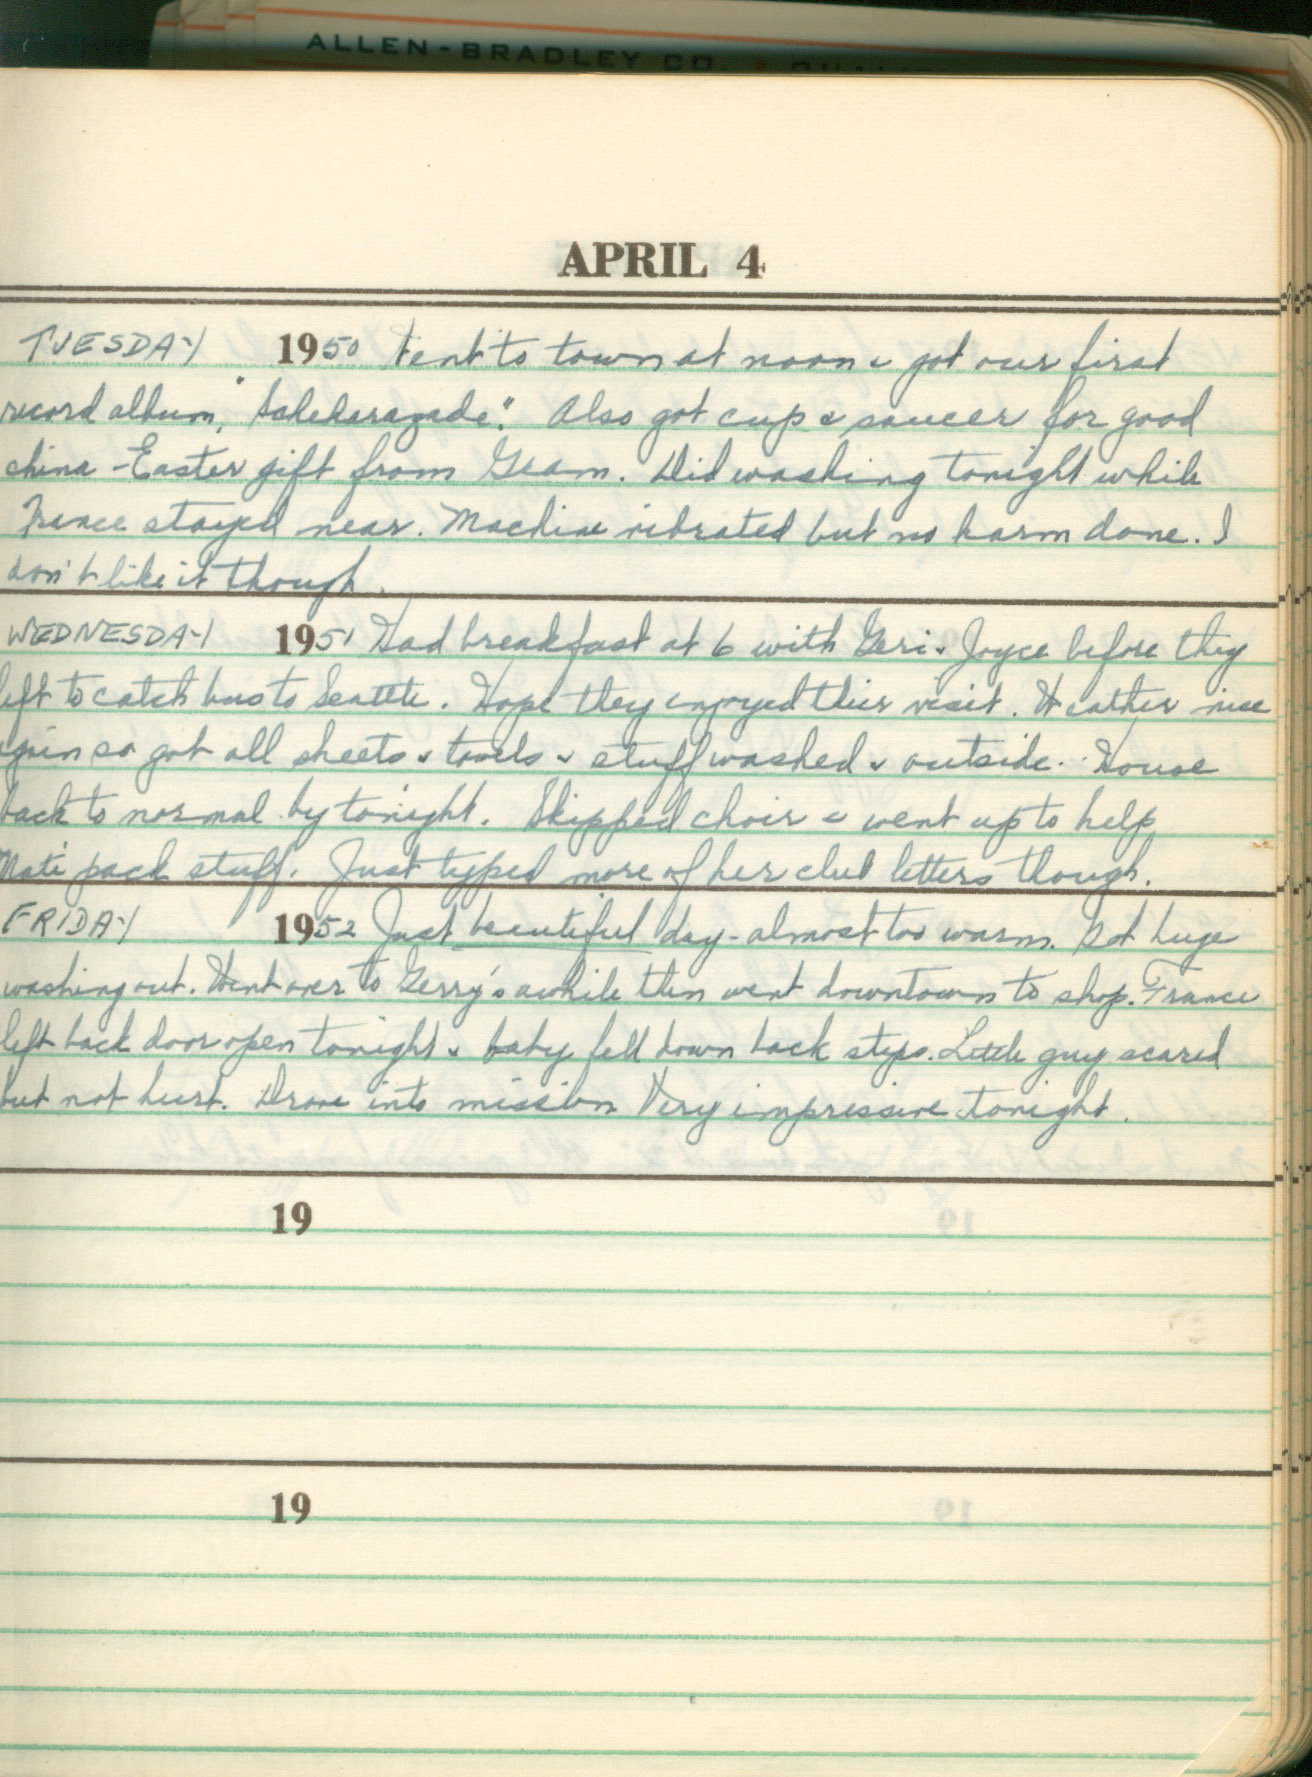 ALLEN-BRADLEY CO.
APRIL 4
TUESDAY 1950 Went to town at noon & got our first
record album, "Scheherazade". Also got cup & saucer for good
china - Easter gift from Gram. Did washing tonight while
France stayed near. Machine vibrated but no harm done. I
don't like it though.
WEDNESDAY 1951 Had breakfast at 6 with Geri & Joyce before they
left to catch bus to Seattle. Hope they enjoyed their visit. Weather nice
again so got all sheets & towels & stuff washed & outside. House
back to normal by tonight. Skipped choir & went up to help
pack stuff. Just typed more of her club letters though.
FRIDAY 1952 Just beautiful day - almost too warm. Got huge
washing out. Went over to Gerry's awhile then went downtown to shop. France
left back door open tonight & baby fell down back steps. Little guy scared
but not hurt. Drove into mission Very impressive tonight.
19
19